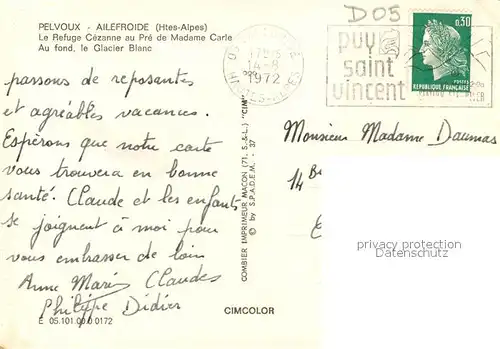 PELVOUX - AILEFROIDE (Htes-Alpes)
Le Refuge Cézanne au Pré de Madame Carle
Au fond, le Glacier Blanc
passons de reposantes
et agréables vacances.
Espérons que notre carte
vous trouvera en bonne
santé. Claude et les enfants
se joignent à moi pour
vous embrasser de loin
Anne Marie Claudes
Philippe Didier
E 05.101.00.0.0172
CIMCOLOR
COMBIER IMPRIMEUR MACON (71. S.-&-L.) "CIM"
© by S.P.A.D.E.M. - 37
17H15
14-8
1972
HAUTES-ALPES
D05
puy
saint
vincent
0,30
POSTES
RÉPUBLIQUE FRANÇAISE
Monsieur Madame Daumas
14
privacy protection
Datenschutz